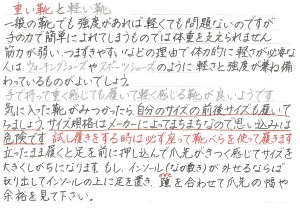 重い靴と軽い靴
一般の靴でも強度があれば軽くても問題ないのですが
手の力で簡単によれてしまうものでは体重を支えられません
筋力が弱い、つまずきやすいなどの理由で体力的に軽さが必要な
人はウォーキングシューズやスポーツシューズのように軽さと強度が兼ね備
わっているものがよいでしょう。
手で持って重く感じても履いて軽く感じる靴が良いようです
気に入った靴がみつかったら、自分のサイズの前後サイズも履いて
みましょう。サイズ規格はメーカーによってまちまちなので思い込みは
危険です 試し履きをする時は必ず座って靴べらを使って履きます
立ったまま履くと足を前に押し込んで爪先がきつく感じてサイズを
大きくしがちになります。もし、インソール(なか敷き)が外せるならば
取り出してインソールの上に足を置き、踵を合わせて爪先の幅や
余裕を見て下さい。